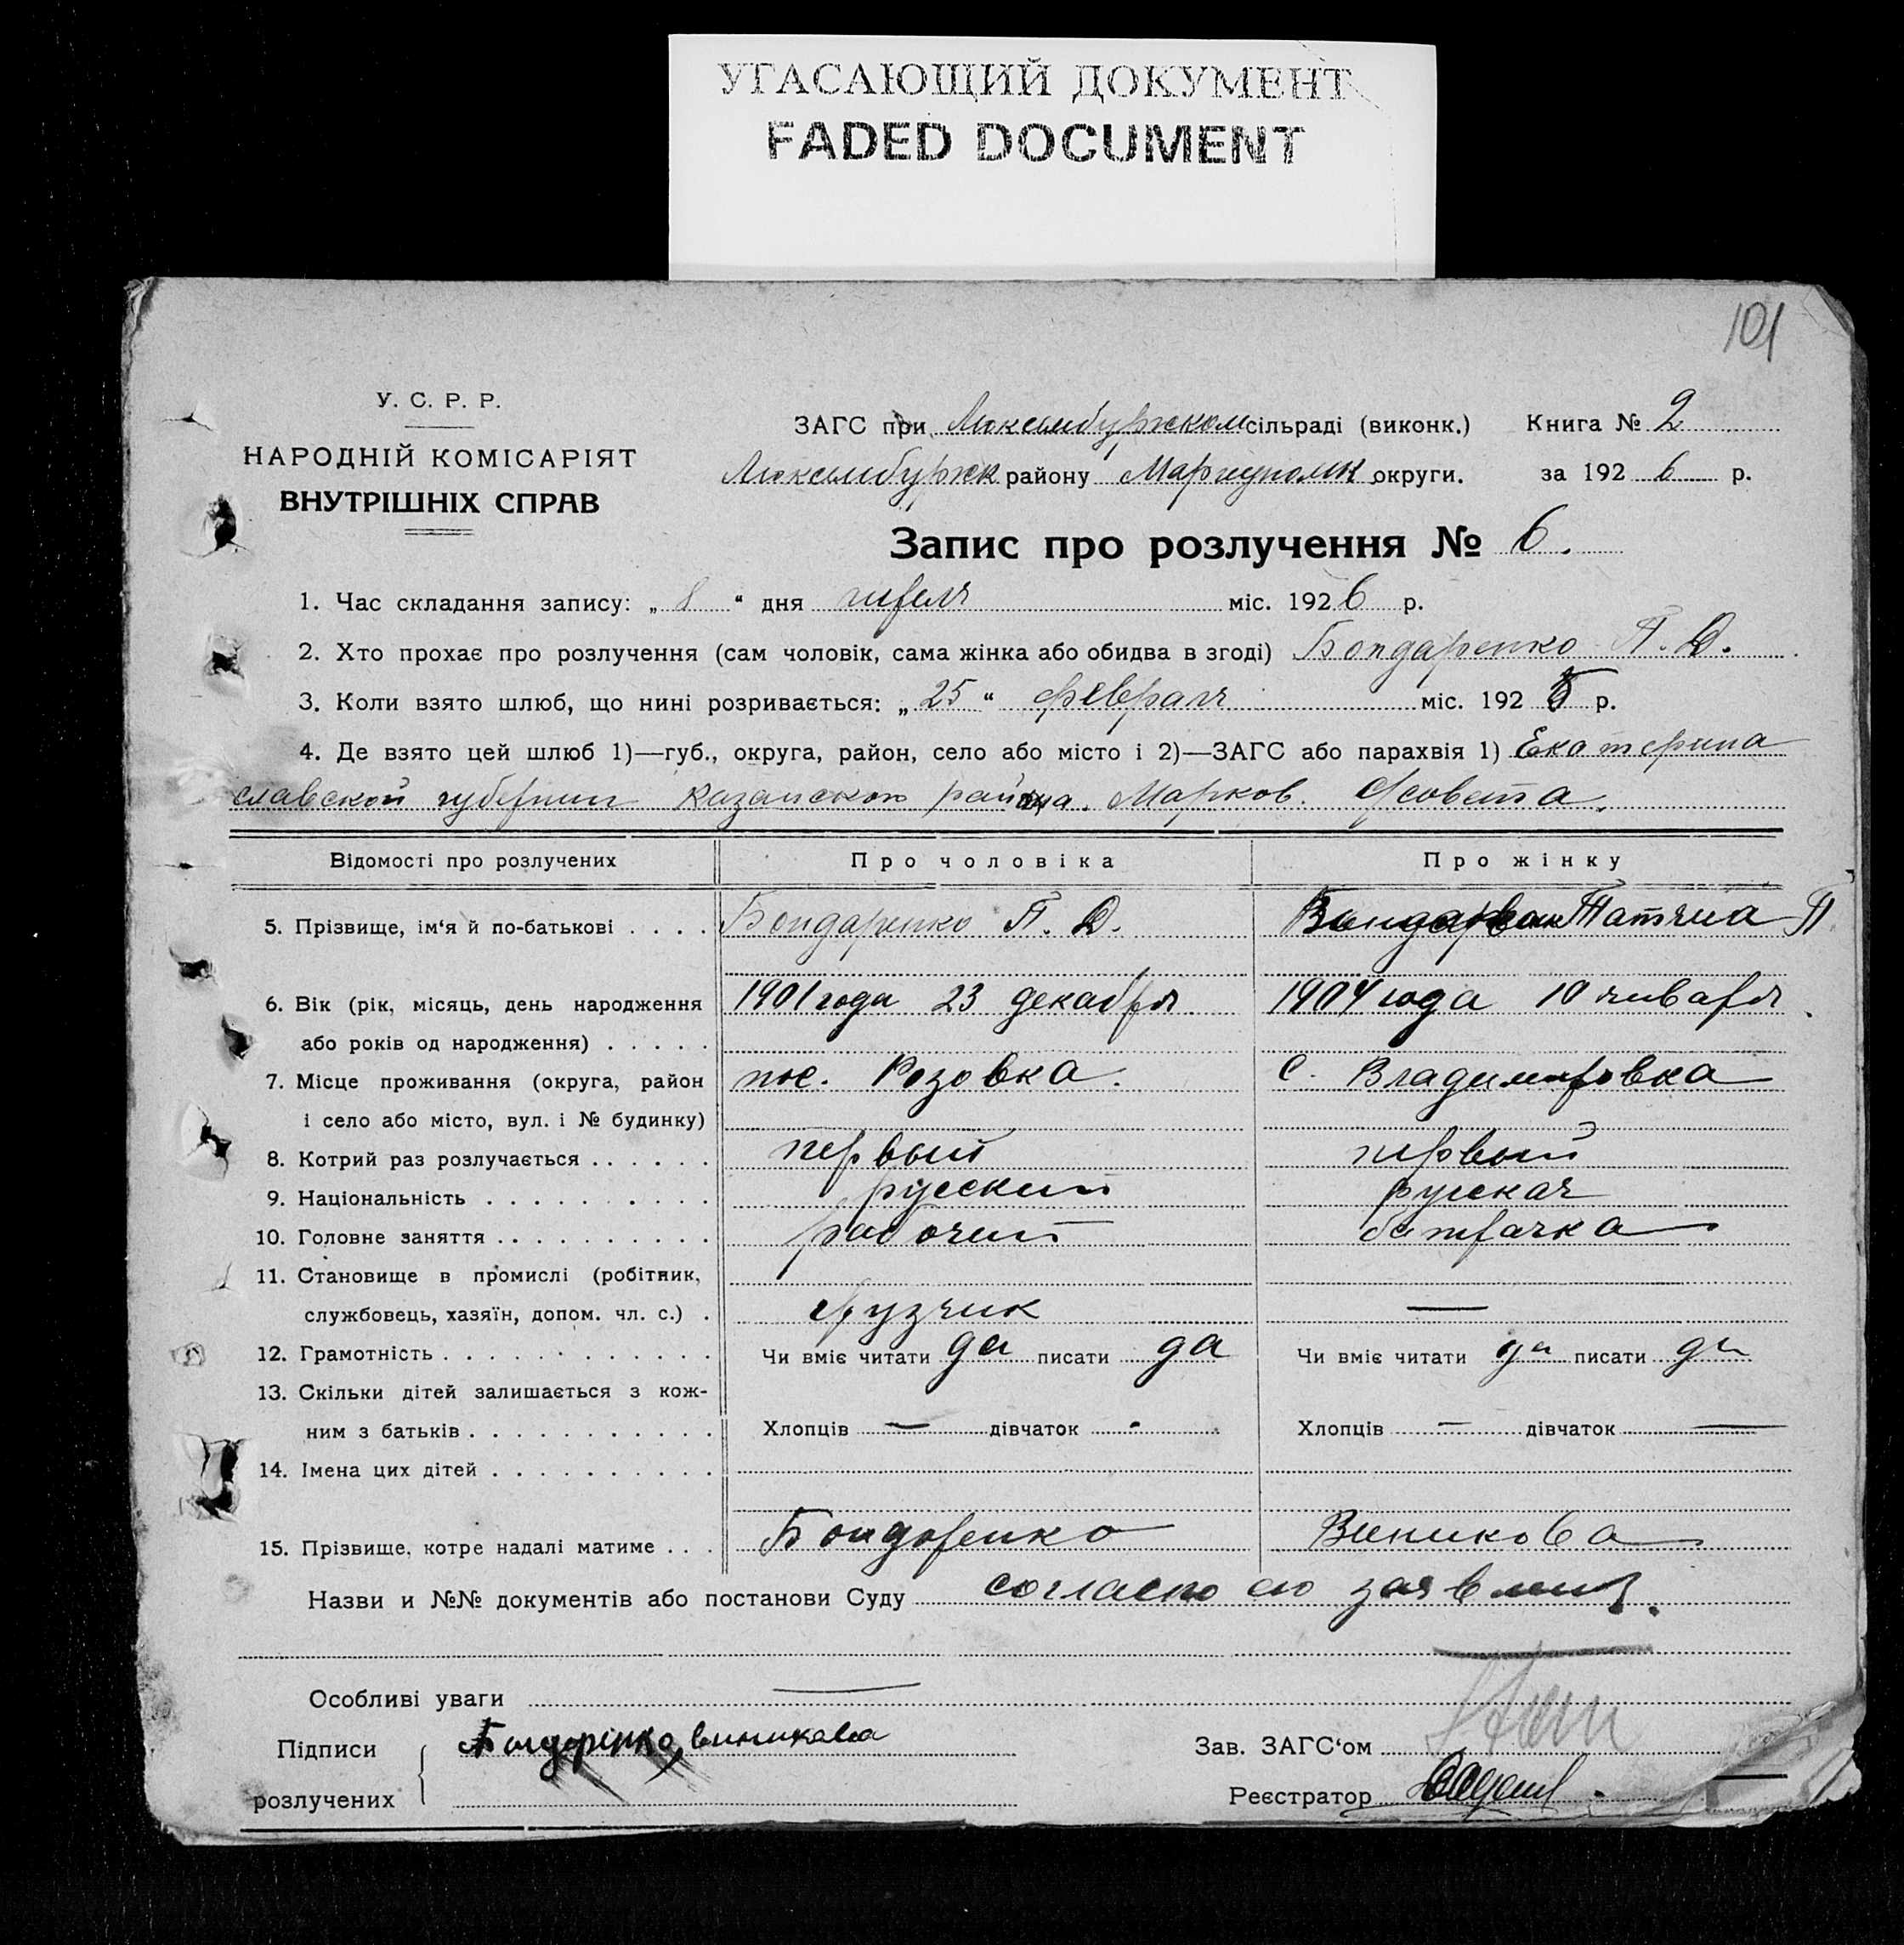 УГАСАЮЩИЙ ДОКУМЕНТ
FADED DOCUMENT
101
У. С. Р. Р.
НАРОДНІЙ КОМІСАРІЯТ
ВНУТРІШНІХ СПРАВ
ЗАГС при Люксембуржском сільраді (виконк.) Книга № 2
Люксембуржк району Мариуполк округи. за 192 6 р.
Запис про розлучення № 6.
1. Час складання запису: „ 8 “ дня міс. 192 6 р.
2. Хто прохає про розлучення (сам чоловік, сама жінка або обидва в згоді) Бондаренко П. Д.
3. Коли взято шлюб, що нині розривається: „ 25 “ февраля міс. 192 5 р.
4. Де взято цей шлюб 1)—губ., округа, район, село або місто і 2)—ЗАГС або парахвія 1) Екатерино
славской губернии Казанского района. Марков. с/совета.
Відомості про розлучених Про чоловіка Про жінку
5. Прізвище, ім‘я й по-батькові . . . . Бондаренко П. Д. Татяна П.
6. Вік (рік, місяць, день народження 1901 года 23 декабря 1904 года 10 января
або років од народження) . . . . .
7. Місце проживання (округа, район пос. Розовка. с. Владимировка
і село або місто, вул. і № будинку)
8. Котрий раз розлучається . . . . . . первый первый
9. Національність . . . . . . . . . . русский русская
10. Головне заняття . . . . . . . . . . рабочий батрачка
11. Становище в промислі (робітник,
службовець, хазяїн, допом. чл. с.) . грузчик —
12. Грамотність . . . . . . . . . . . . . Чи вміє читати да писати да Чи вміє читати да писати да
13. Скільки дітей залишається з кож-
ним з батьків . . . . . . . . . . . Хлопців — дівчаток - Хлопців — дівчаток —
14. Імена цих дітей . . . . . . . . . .
15. Прізвище, котре надалі матиме . . . Бондаренко Виникова
Назви и №№ документів або постанови Суду согласно заявлен.
Особливі уваги —
Підписи Бондаренко виникова Зав. ЗАГС‘ом
розлучених Реєстратор